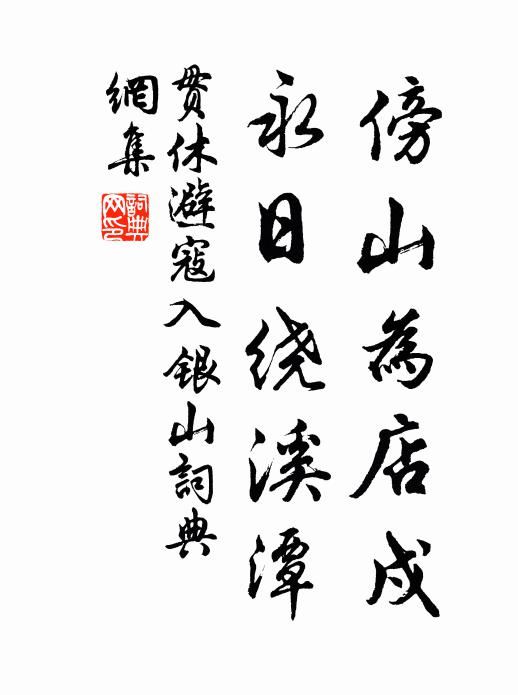 傍山為店戍
永日绕溪潭
贯休避寇入銀山詞典
網集
詞典
网印